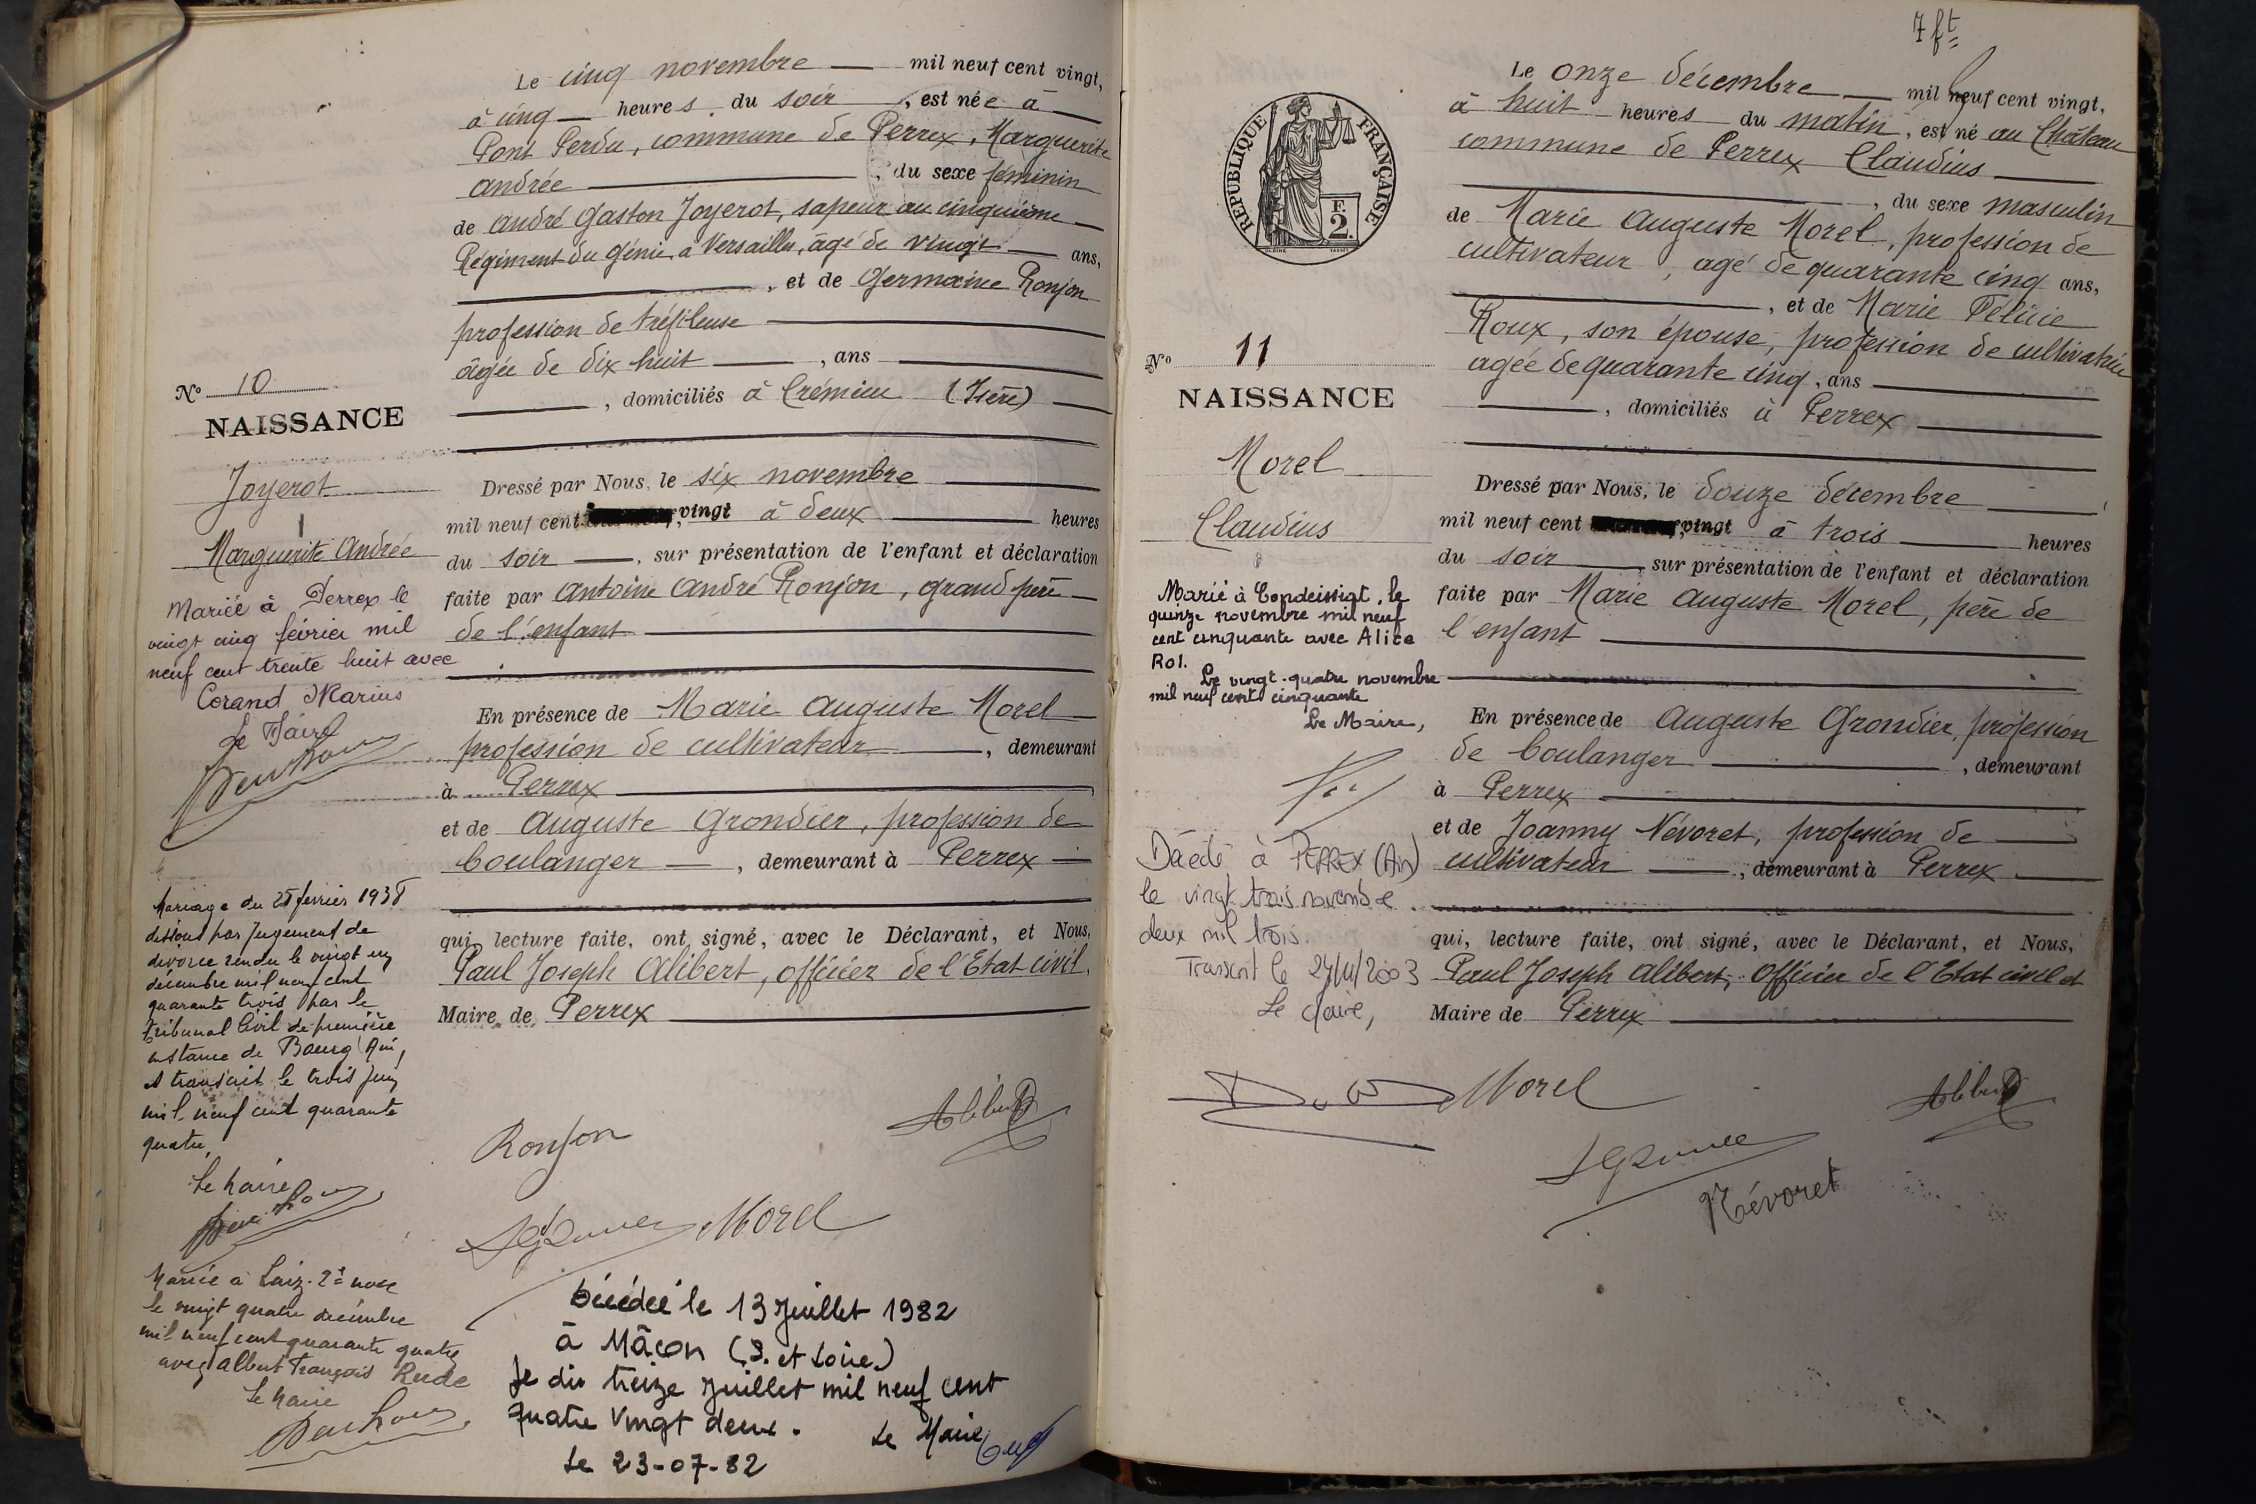 Le cinq novembre mil neuf cent vingt,
à cinq heures du soir, est née à
Pont Perdu, commune de Perrex, Marguerite
Andrée, du sexe féminin
de André Gaston Joyerot, sapeur au cinquième
Régiment du Génie à Versailles, âgé de vingt ans,
, et de Germaine Ronjon
profession de tréfileuse
âgée de dix huit, ans
, domiciliés à Crémieu (Isère)
N° 10
NAISSANCE
Joyerot
Marguerite Andrée
Mariée à Perrex le
vingt cinq février mil
neuf cent trente huit avec
Corand Marius
Le Maire
Mariage du 25 février 1938
dissous par jugement de
divorce rendu le vingt un
décembre mil neuf cent
quarante trois par le
tribunal Civil de première
instance de Bourg Ain,
et transcrit le trois juin
mil neuf cent quarante
quatre,
Le Maire
Mariée à Laiz. 2e noce
le vingt quatre décembre
mil neuf cent quarante quatre
avec Albert François Rude
Le Maire
Dressé par Nous, le six novembre
mil neuf cent vingt à deux heures
du soir, sur présentation de l'enfant et déclaration
faite par Antoine André Ronjon, grand père
de l'enfant
En présence de Marie Auguste Morel
profession de cultivateur, demeurant
à Perrex
et de Auguste Grondier, profession de
boulanger, demeurant à Perrex
qui, lecture faite, ont signé, avec le Déclarant, et Nous,
Paul Joseph Alibert, officier de l'Etat civil,
Maire de Perrex
Ronjon
Alibert
Morel
Décédée le 13 Juillet 1982
à Mâcon (S. et Loire)
Je dis treize Juillet mil neuf cent
quatre vingt deux.
Le Maire
Le 23-07-82
7 ft
RÉPUBLIQUE FRANÇAISE
F.
2.
Le onze décembre mil neuf cent vingt,
à huit heures du matin, est né au Château
commune de Perrex Claudius
, du sexe masculin
de Marie Auguste Morel, profession de
cultivateur, agé de quarante cinq ans,
, et de Marie Félicie
Roux, son épouse, profession de cultivatrice
agée de quarante cinq, ans
, domiciliés à Perrex
N° 11
NAISSANCE
Morel
Claudius
Marié à Condeissiat, le
quinze novembre mil neuf
cent cinquante avec Alice
Rol.
Le vingt-quatre novembre
mil neuf cent cinquante
Le Maire,
Décédé à PERREX (Ain)
le vingt trois novembre
deux mil trois.
Transcrit le 27/11/2003
Le Maire,
Dressé par Nous, le douze décembre
mil neuf cent vingt à trois heures
du soir, sur présentation de l'enfant et déclaration
faite par Marie Auguste Morel, père de
l'enfant
En présence de Auguste Grondier, profession
de boulanger, demeurant
à Perrex
et de Joanny Névoret, profession de
cultivateur, demeurant à Perrex
qui, lecture faite, ont signé, avec le Déclarant, et Nous,
Paul Joseph Alibert, Officier de l'Etat civil et
Maire de Perrex
Morel
Alibert
Névoret